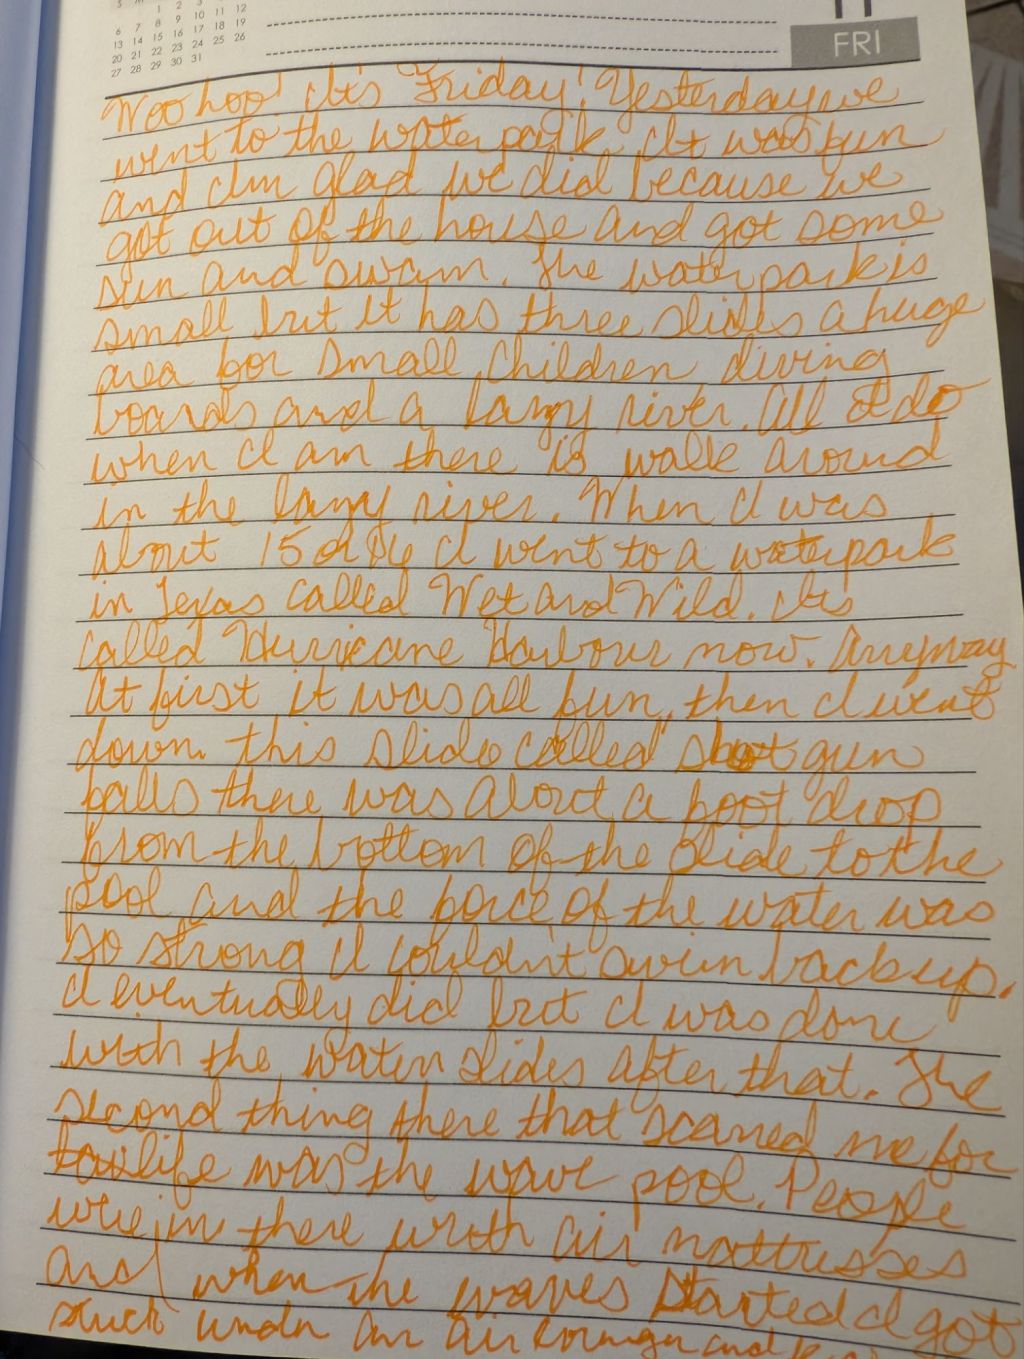 S M
1 2 3 4 5
6 7 8 9 10 11 12
13 14 15 16 17 18 19
20 21 22 23 24 25 26
27 28 29 30 31
FRI
Woohoo! It's Friday! Yesterday we
went to the water park. It was fun
and I'm glad we did because we
got out of the house and got some
sun and swam. The water park is
small but it has three slides a huge
area for small children, diving
boards and a lazy river. All I do
when I am there is walk around
in the lazy river. When I was
about 15 or 16 I went to a waterpark
in Texas called Wet and Wild. Its
called Hurricane Harbour now. Anyway
At first it was all fun, then I went
down this slide called shotgun
falls there was about a foot drop
from the bottom of the slide to the
pool and the force of the water was
so strong I couldn't swim back up.
I eventually did but I was done
with the water slides after that. The
second thing there that scared me for
life was the wave pool. People
were in there with air mattresses
And when the waves started I got
stuck under an air and